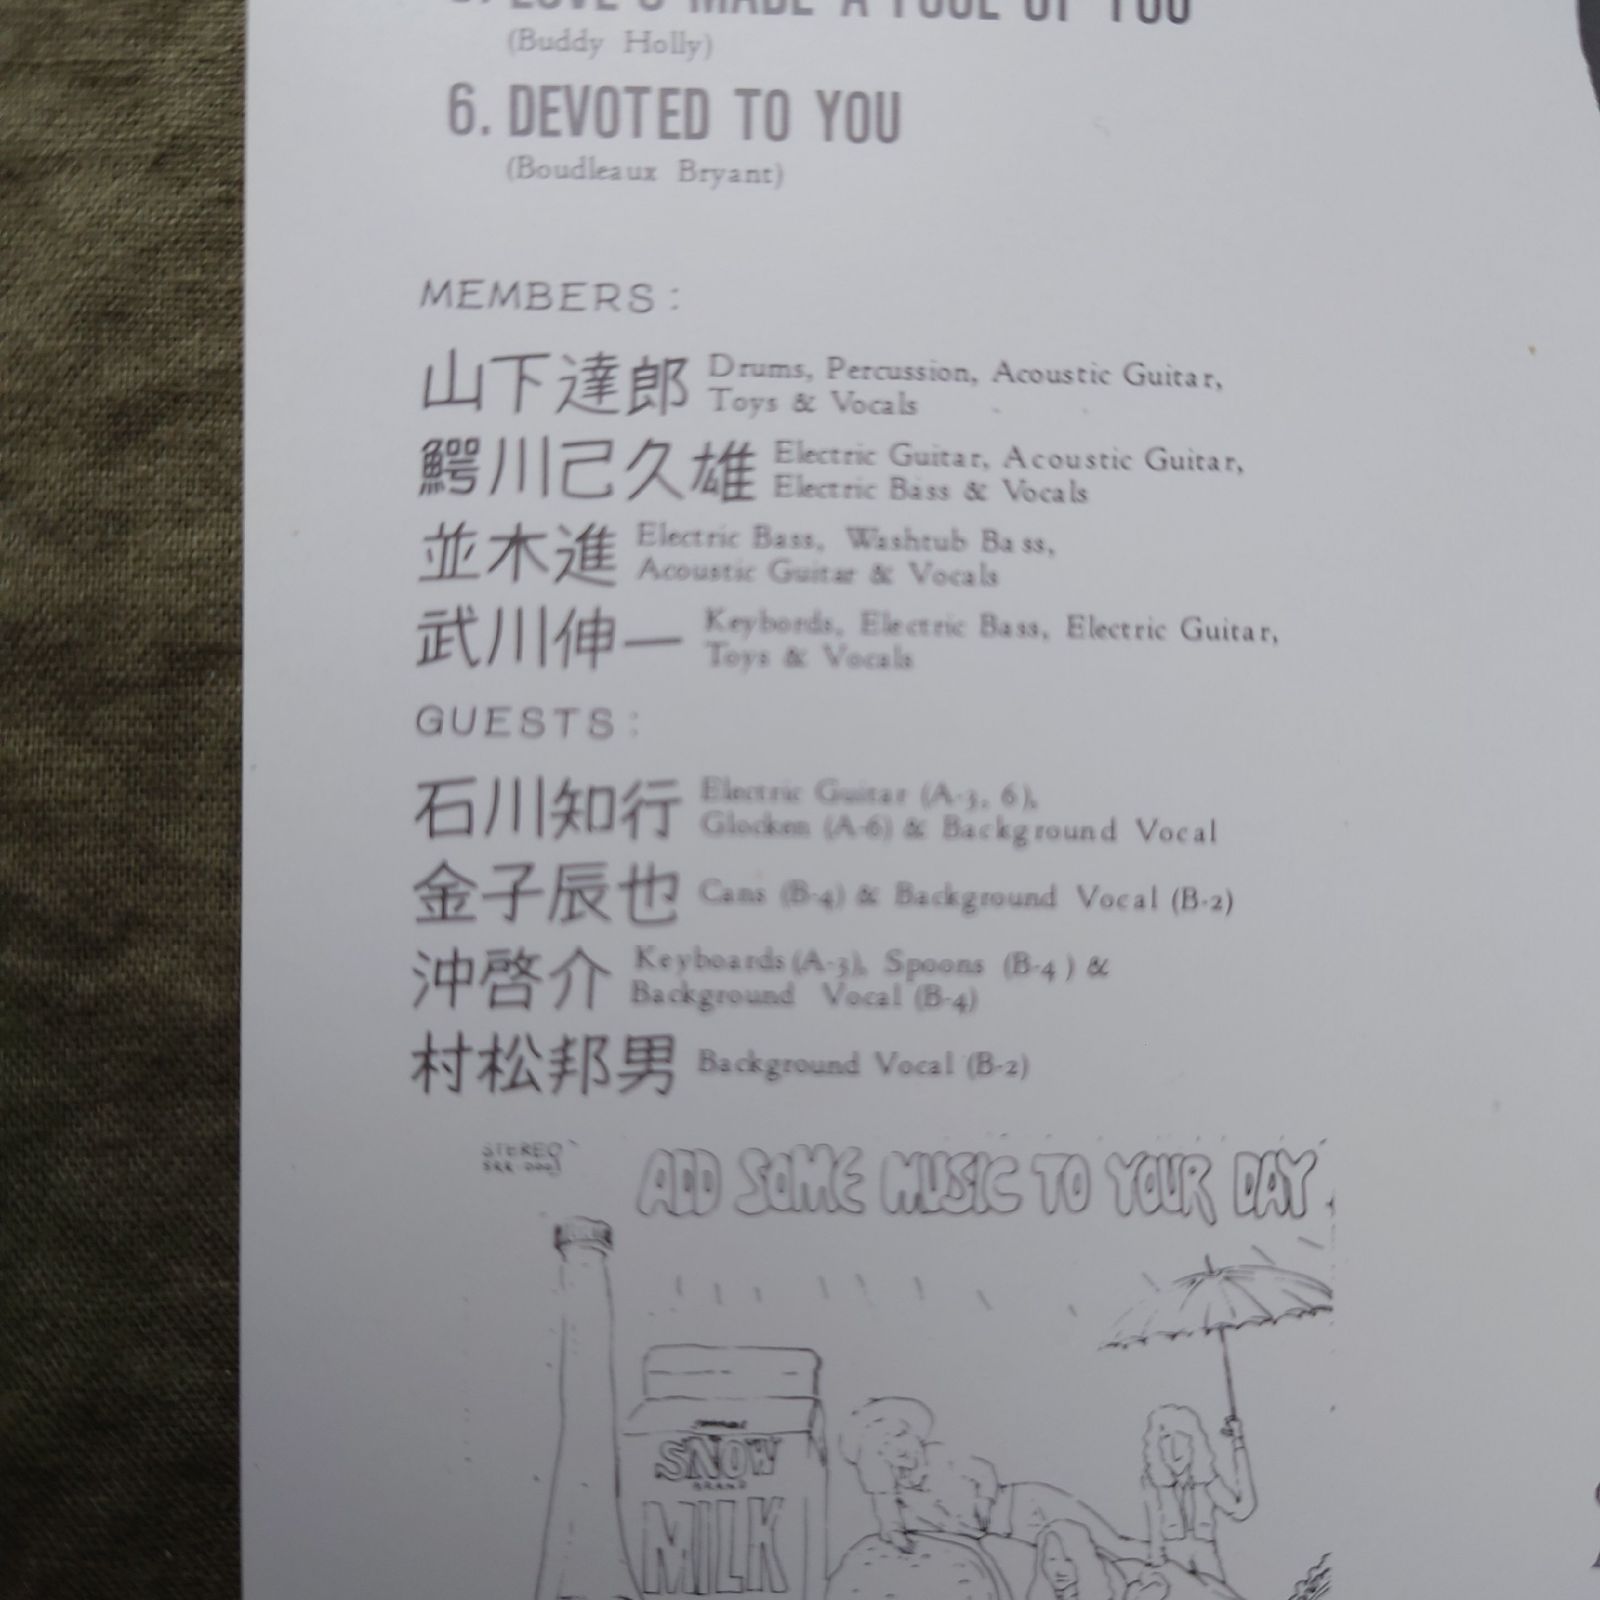 5. LOVE'S MADE A FOOL OF YOU
(Buddy Holly)
6. DEVOTED TO YOU
(Boudleaux Bryant)
MEMBERS:
山下達郎 Drums, Percussion, Acoustic Guitar,
Toys & Vocals
鰐川己久雄 Electric Guitar, Acoustic Guitar,
Electric Bass & Vocals
並木進 Electric Bass, Washtub Bass,
Acoustic Guitar & Vocals
武川伸一 Keybords, Electric Bass, Electric Guitar,
Toys & Vocals
GUESTS:
石川知行 Electric Guitar (A-3, 6),
Glocken (A-6) & Background Vocal
金子辰也 Cans (B-4) & Background Vocal (B-2)
沖啓介 Keyboards (A-3), Spoons (B-4) &
Background Vocal (B-4)
村松邦男 Background Vocal (B-2)
STEREO
ADD SOME MUSIC TO YOUR DAY
SNOW
BRAND
MILK